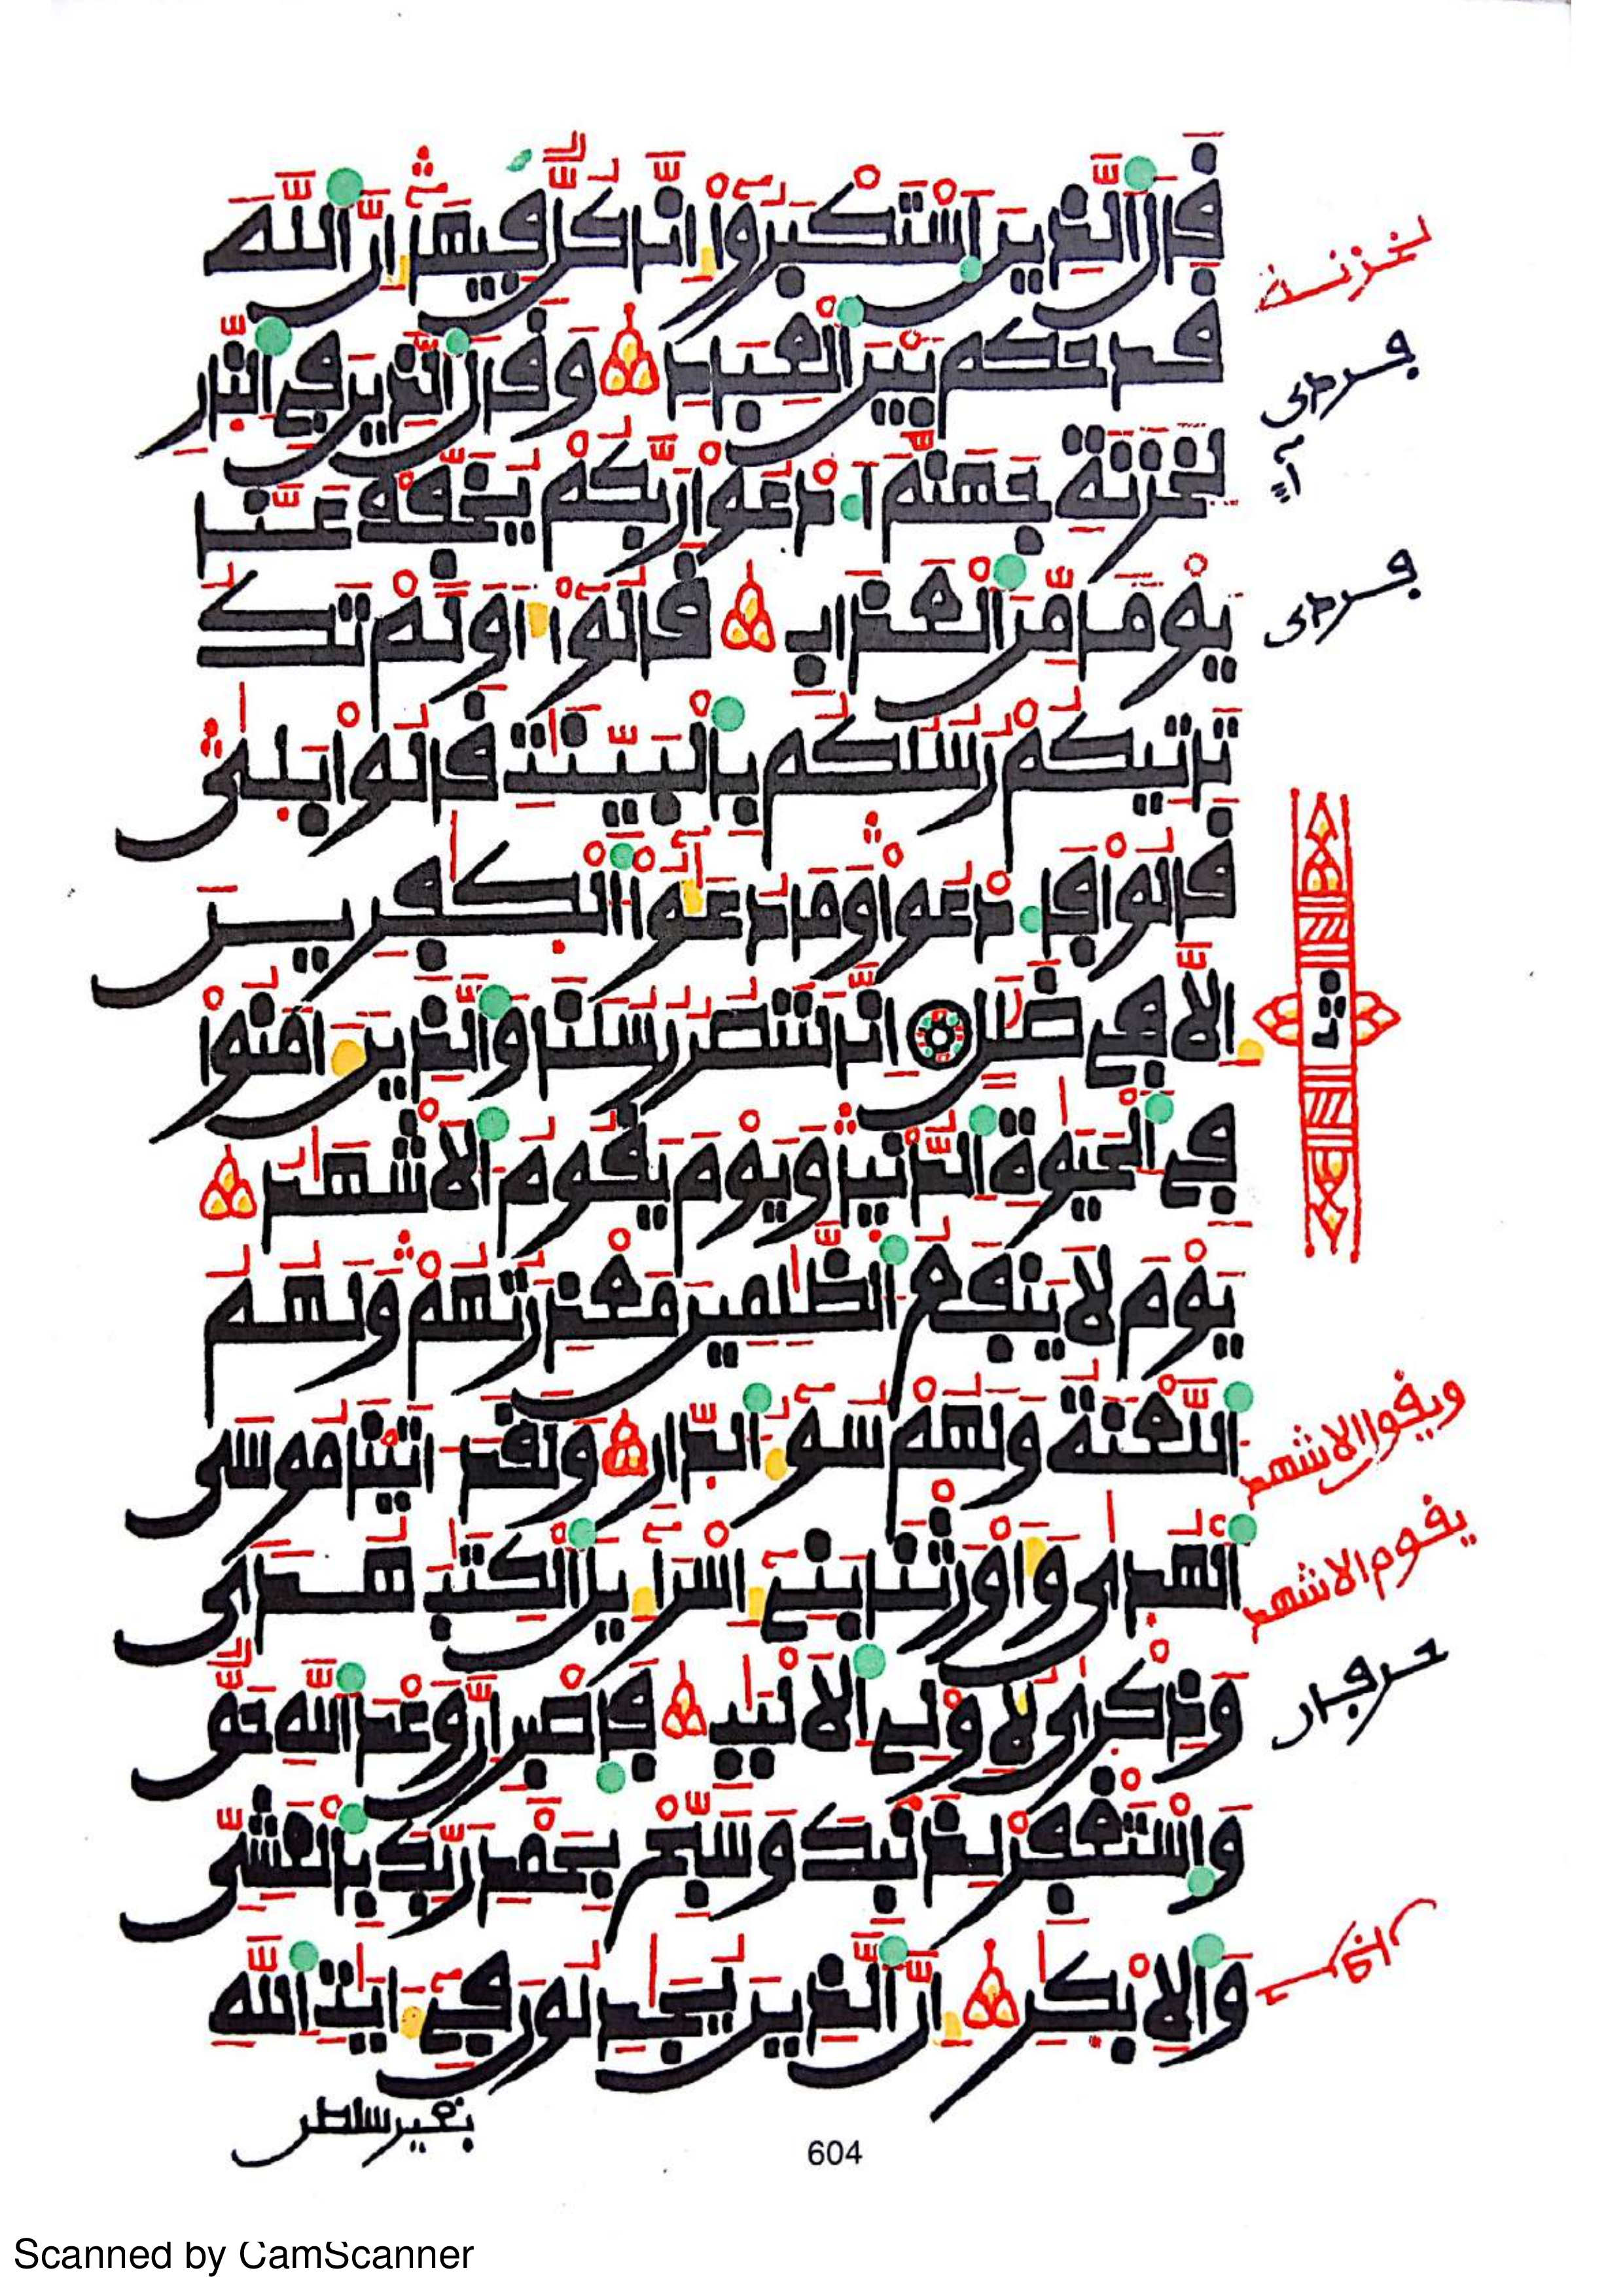 قَالَ ٱلذِينَ ٱسْتَكْبَرُوٓاْ إِنَّا كُلّٞ فِيهَآ إِنَّ ٱللَّهَ
قَدْ حَكَمَ بَيْنَ ٱلْعِبَادِ وَقَالَ ٱلذِينَ فِي ٱلنّ۪ارِ
لِخَزَنَةِ جَهَنَّمَ ٱدْعُواْ رَبَّكُمْ يُخَفِّفْ عَنَّا
يَوْماٗ مِّنَ ٱلْعَذَابِ قَالُوٓاْ أَوَلَمْ تَكُ
تَاتِيكُمْ رُسُلُكُم بِالْبَيِّنَٰتِ قَالُواْ بَل۪ىٰ
قَالُواْ فَادْعُواْ وَمَا دُعَٰٓؤُاْ ٱلْكٰ۪فِرِينَ
إِلَّا فِي ضَلَٰلٍ إِنَّا لَنَنصُرُ رُسُلَنَا وَالذِينَ ءَامَنُواْ
فِي ٱلْحَيَوٰةِ ٱلدُّنْي۪ا وَيَوْمَ يَقُومُ ٱلَاشْهَٰدُ
يَوْمَ لَا تَنفَعُ ٱلظَّٰلِمِينَ مَعْذِرَتُهُمْ وَلَهُمُ
ٱللَّعْنَةُ وَلَهُمْ سُوٓءُ ٱلدّ۪ارِ وَلَقَدَ اٰتَيْنَا مُوسَى
ٱلْهُد۪ىٰ وَأَوْرَثْنَا بَنِےٓ إِسْرَآءِيلَ ٱلْكِتَٰبَ هُدىٗ
وَذِكْر۪ىٰ لِأُوْلِي ٱلَالْبَٰبِ فَاصْبِرِ اِنَّ وَعْدَ ٱللَّهِ حَقّٞ
وَاسْتَغْفِرْ لِذَنۢبِكَ وَسَبِّحْ بِحَمْدِ رَبِّكَ بِالْعَشِيِّ
وَالِابْكٰ۪رِ إِنَّ ٱلذِينَ يُجَٰدِلُونَ فِےٓ ءَايَٰتِ ٱللَّهِ
بغير سلطن
604
Scanned by CamScanner